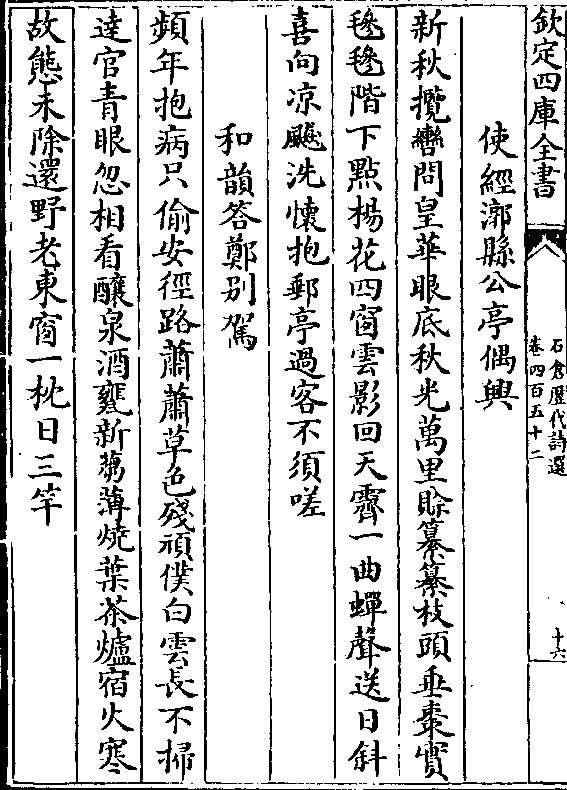 欽定四庫全書
石倉歷代詩選
卷四百五十二
十六
使經漷縣公亭偶興
新秋攬轡問皇華眼底秋光萬里賖纂纂枝頭垂棗實
毿毿階下點楊花四窗雲影回天霽一曲蟬聲送日斜
喜向凉飈洗懷抱郵亭過客不須嗟
和韻答鄭别駕
頻年抱病只偷安徑路蕭蕭草色殘頑僕白雲長不掃
逹官青眼忽相看釀泉酒甕新蒭薄燒葉茶爐宿火寒
故態未除還野老東窗一枕日三竿